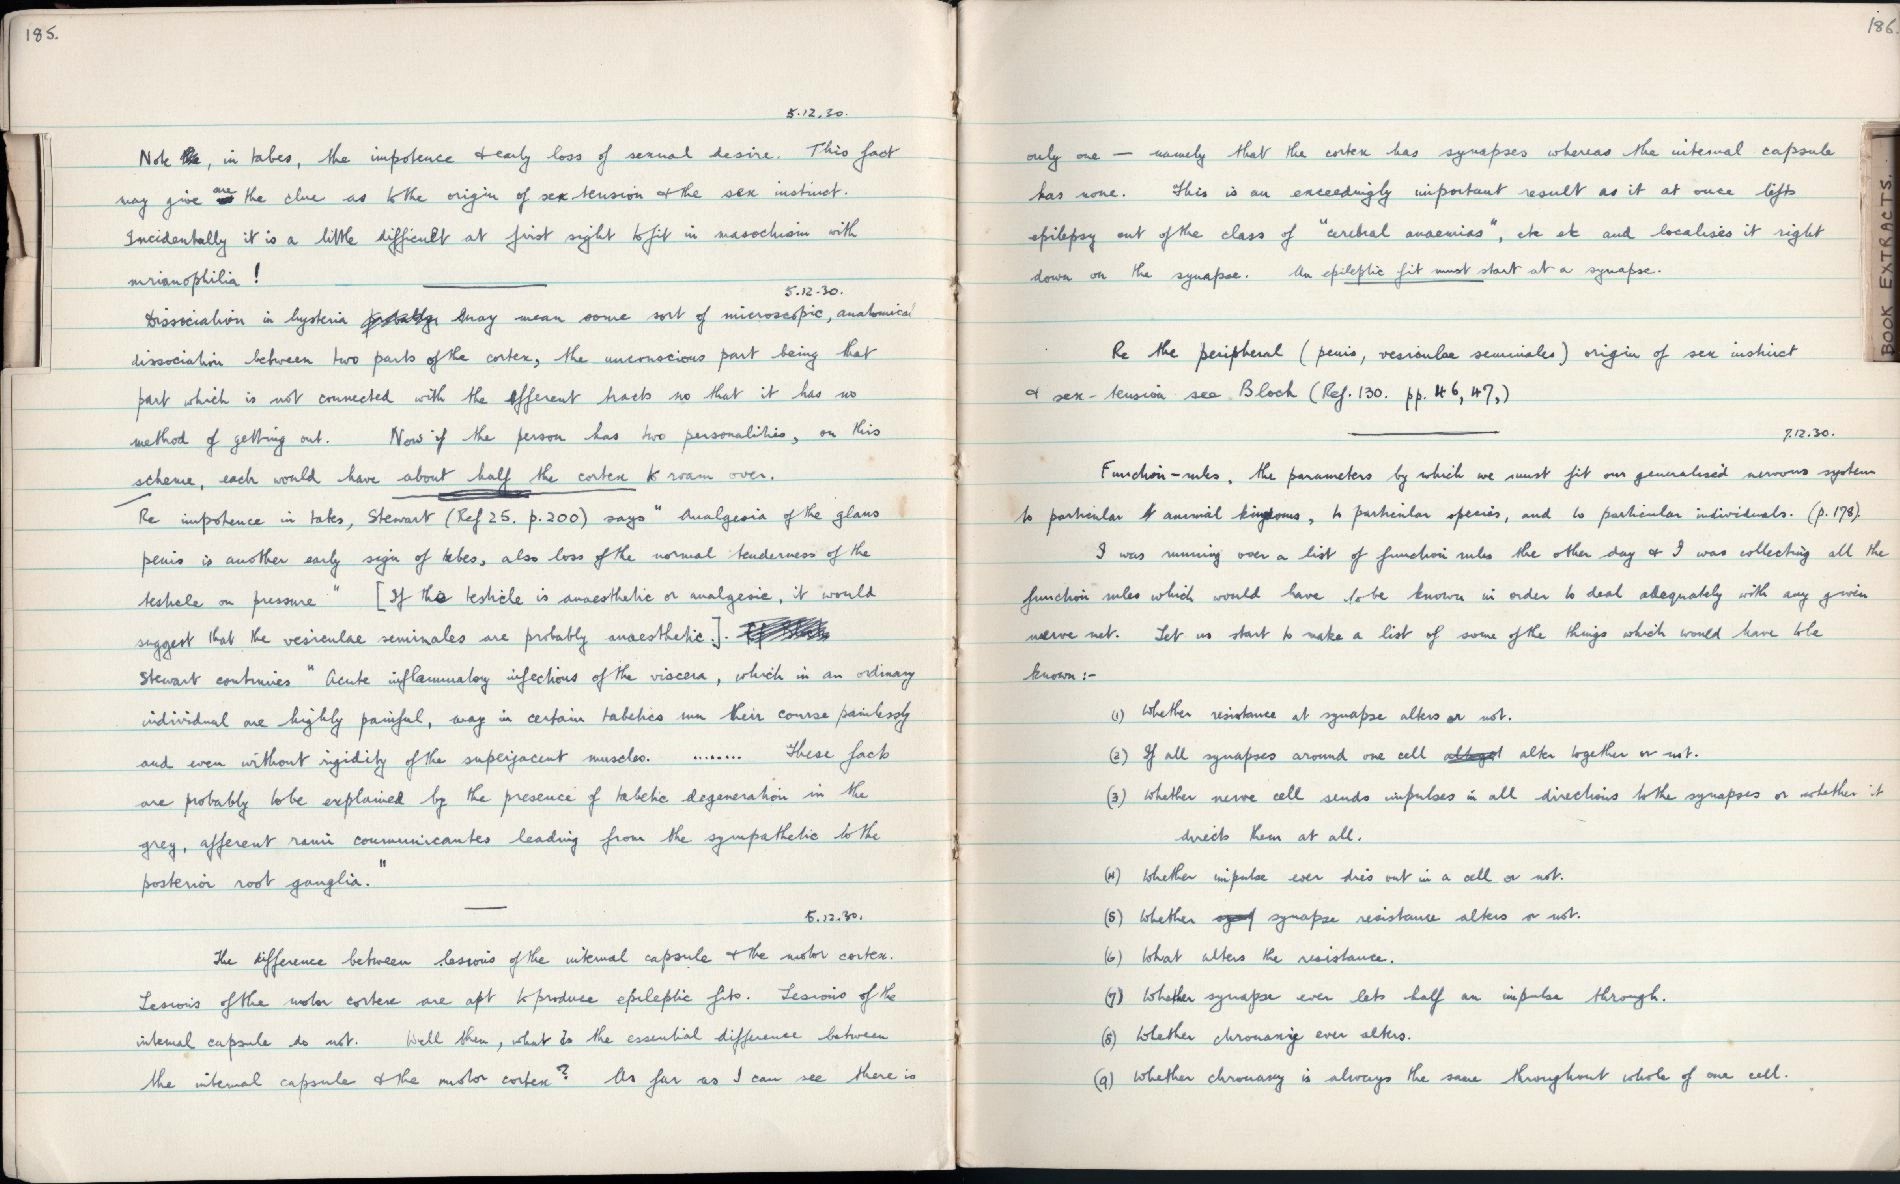 185.
5.12.30.
Note , in tabes, the impotence & early loss of sexual desire. This fact
may give one the clue as to the origin of sex tension & the sex instinct.
Incidentally it is a little difficult at first sight to fit in masochism with
!
5.12.30.
Dissociation in hysteria probably may mean some sort of microscopic, anatomical
dissociation between two parts of the cortex, the unconscious part being that
part which is not connected with the efferent tracts so that it has no
method of getting out. Now if the person has two personalities, on this
scheme, each would have about half the cortex to roam over.
Re impotence in tabes, Stewart (Ref 25. p.200) says "Analgesia of the glans
penis is another early sign of tabes, also loss of the normal tenderness of the
testicle on pressure" [If the testicle is anaesthetic or analgesic, it would
suggest that the vesiculae seminales are probably anaesthetic.].
Stewart continues "Acute inflammatory infections of the viscera, which in an ordinary
individual are highly painful, may in certain tabetics run their course painlessly
and even without rigidity of the superjacent muscles. ........ These facts
are probably to be explained by the presence of tabetic degeneration in the
grey, afferent rami communicantes leading from the sympathetic to the
posterior root ganglia."
5.12.30.
The difference between lesions of the internal capsule & the motor cortex.
Lesions of the motor cortex are apt to produce epileptic fits. Lesions of the
internal capsule do not. Well then, what is the essential difference between
the internal capsule & the motor cortex? As far as I can see there is
186.
only one — namely that the cortex has synapses whereas the internal capsule
has none. This is an exceedingly important result as it at once lifts
epilepsy out of the class of "cerebral anaemias", etc etc and localises it right
down on the synapse. An epileptic fit must start at a synapse.
Re the peripheral (penis, vesiculae seminales) origin of sex instinct
& sex-tension see Bloch (Ref. 130. pp. 46, 47,)
7.12.30.
Function-rules, the parameters by which we must fit our generalised nervous system
to particular animal kingdoms, to particular species, and to particular individuals. (p.178).
I was running over a list of function rules the other day & I was collecting all the
function rules which would have to be known in order to deal adequately with any given
nerve net. Let us start to make a list of some of the things which would have to be
known:-
(1) Whether resistance at synapse alters or not.
(2) If all synapses around one cell alter together or not.
(3) Whether nerve cell sends impulses in all directions to the synapses or whether it
directs them at all.
(4) Whether impulse ever dies out in a cell or not.
(5) Whether synapse resistance alters or not.
(6) What alters the resistance.
(7) Whether synapse ever lets half an impulse through.
(8) Whether chronaxie ever alters.
(9) Whether chronaxy is always the same throughout whole of one cell.
BOOK EXTRACTS.